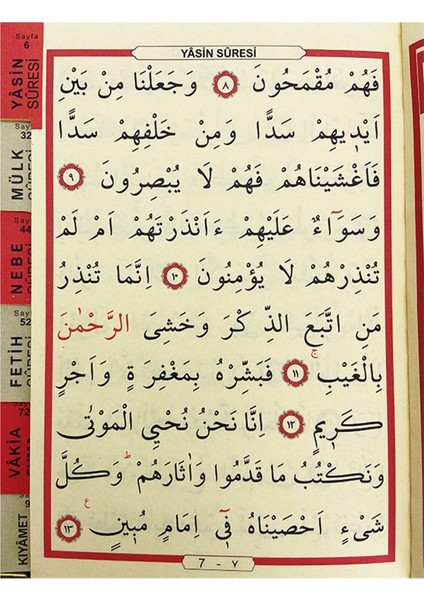 YÂSİN SÛRESİ
فَهُمْ مُقْمَحُونَ ﴿٨﴾ وَجَعَلْنَا مِنْ بَيْنِ
اَيْدٖيهِمْ سَدًّا وَمِنْ خَلْفِهِمْ سَدًّا
فَاَغْشَيْنَاهُمْ فَهُمْ لَا يُبْصِرُونَ ﴿٩﴾
وَسَوَٓاءٌ عَلَيْهِمْ ءَاَنْذَرْتَهُمْ اَمْ لَمْ
تُنْذِرْهُمْ لَا يُؤْمِنُونَ ﴿١٠﴾ اِنَّمَا تُنْذِرُ
مَنِ اتَّبَعَ الذِّكْرَ وَخَشِىَ الرَّحْمٰنَ
بِالْغَيْبِۚ ﴿١١﴾ فَبَشِّرْهُ بِمَغْفِرَةٍ وَاَجْرٍ
كَرٖيمٍ ﴿١٢﴾ اِنَّا نَحْنُ نُحْيِي الْمَوْتٰى
وَنَكْتُبُ مَا قَدَّمُوا وَاٰثَارَهُمْۜ وَكُلَّ
شَیْءٍ اَحْصَيْنَاهُ فٖٓى اِمَامٍ مُبٖينٍ ﴿١٣﴾
7 - ٧
Sayfa
6
YÂSİN
SÛRESİ
32
MÜLK
SÛRESİ
44
NEBE
SÛRESİ
Sayfa
52
FETİH
SÛRESİ
72
VÂKIA
9
KIYÂMET